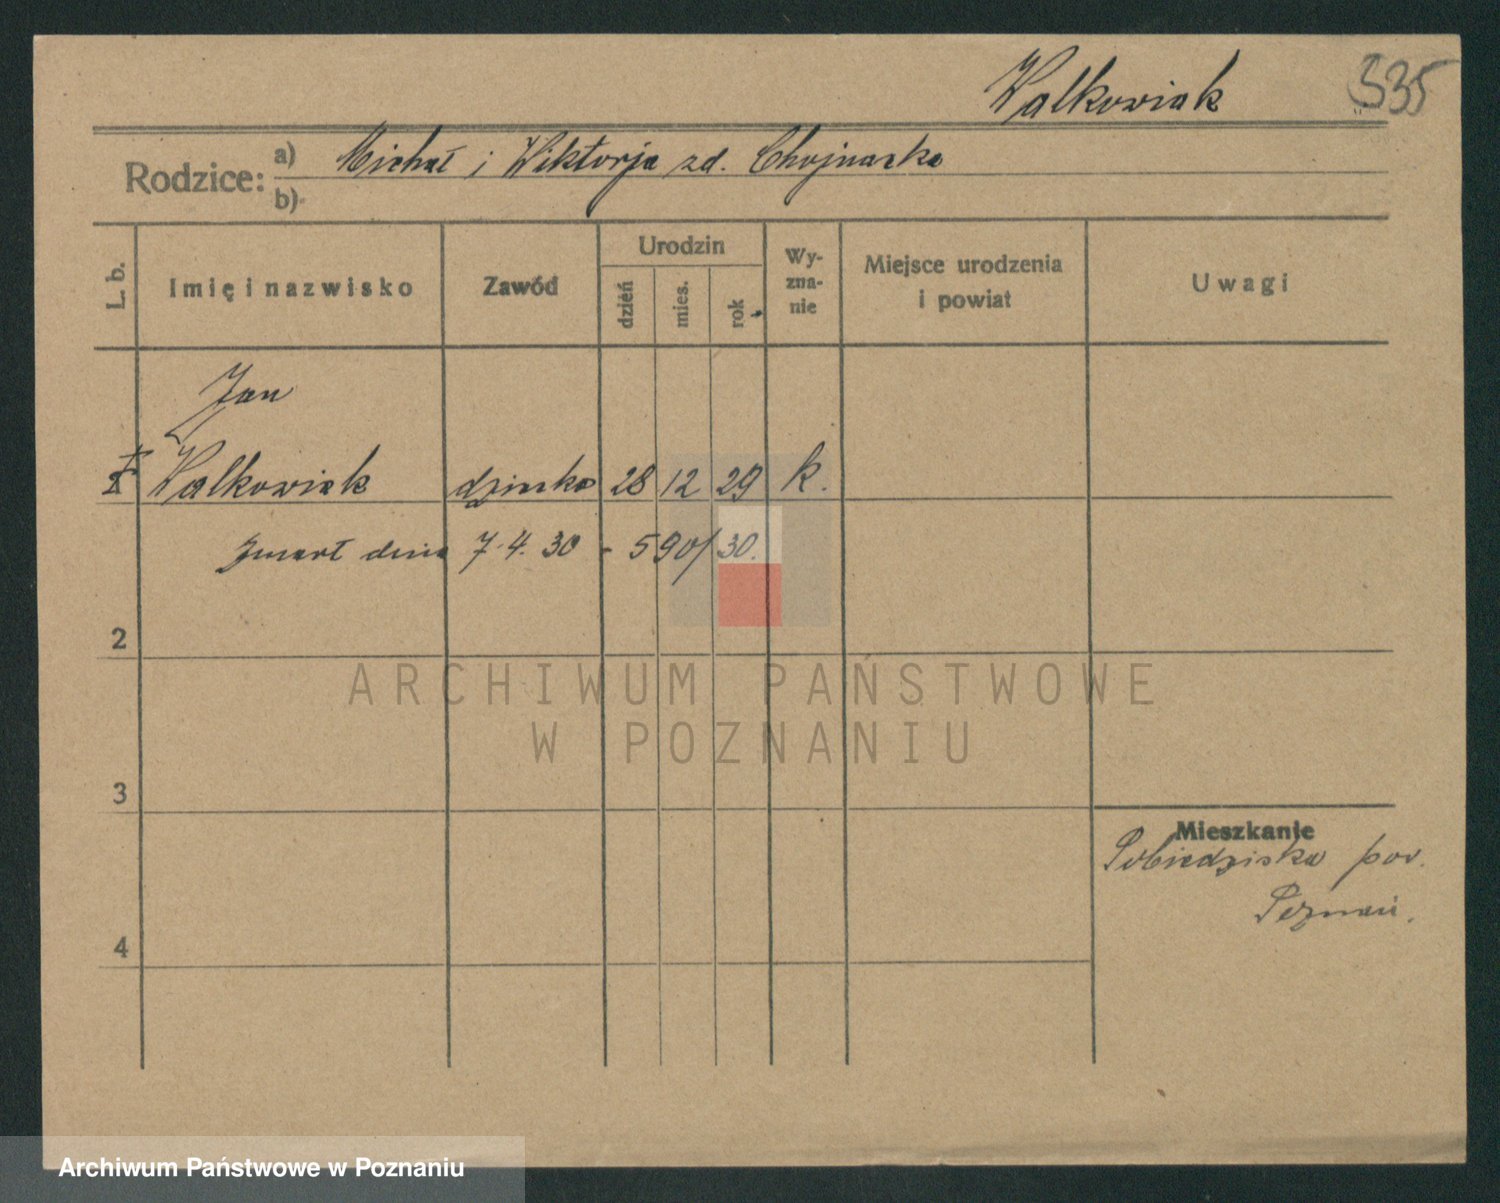 Walkowiak 535
Rodzice: a) Michał i Wiktorja zd. Chojnacka
b)
L. b. Imię i nazwisko Zawód Urodzin dzień mies. rok Wy-zna-nie Miejsce urodzenia i powiat Uwagi
Jan
Walkowiak dziecko 28 12 29 k.
Zmarł dnia 7.4.30 - 590/30.
2
ARCHIWUM PAŃSTWOWE
W POZNANIU
3
Mieszkanie
Pobiedziska pow.
Poznań.
4
Archiwum Państwowe w Poznaniu